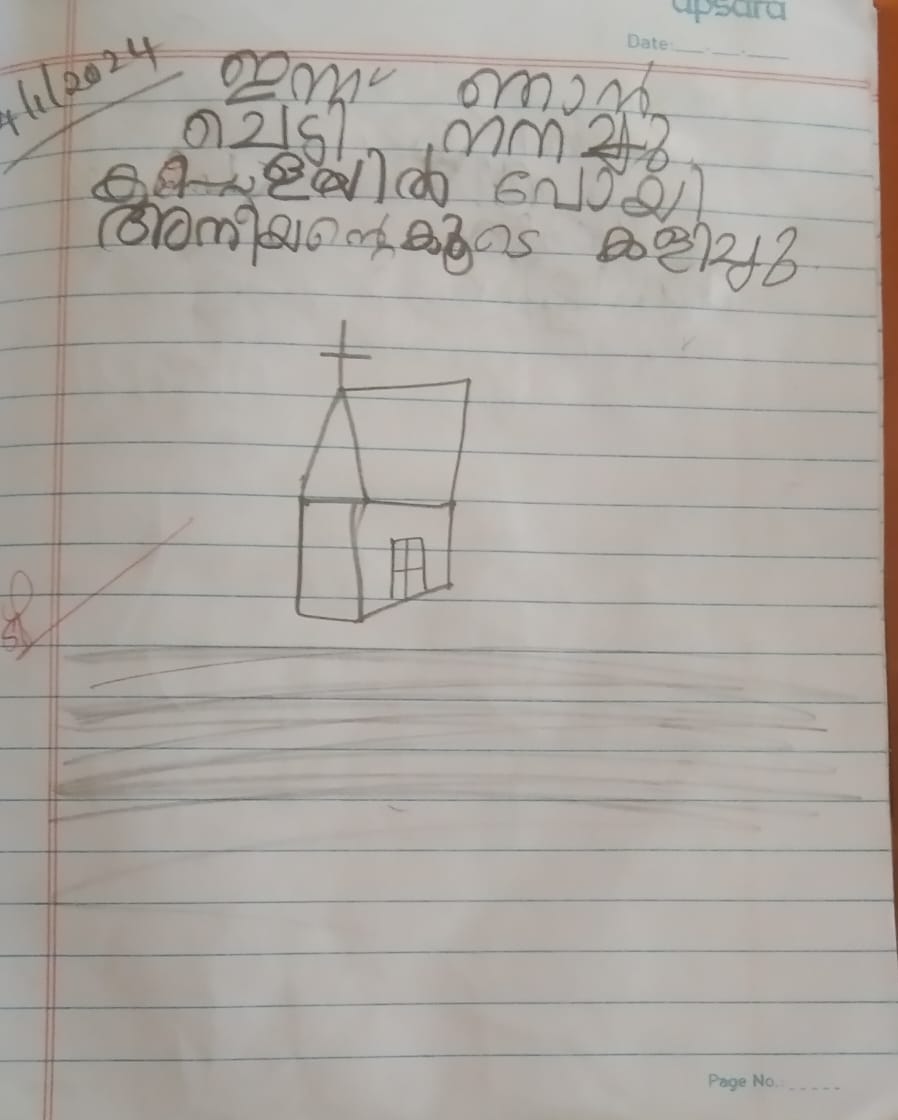 apsara
Date:
4/1/2024
ഇന്ന് ഞാൻ
ചെടി നനച്ചു
പള്ളിയിൽ പോയി
അനിയന്റെകൂടെ കളിച്ചു
Page No.